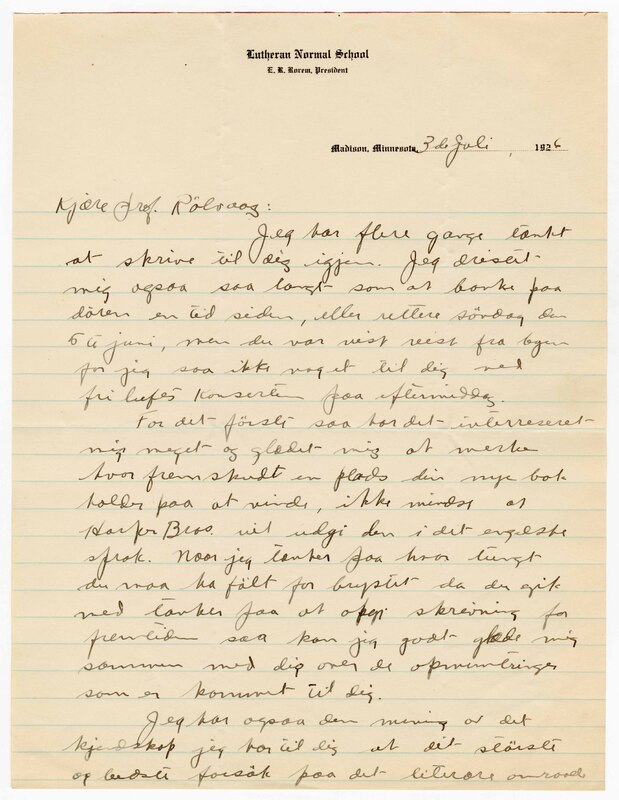 Lutheran Normal School
E. R. Rorem, President
Madison, Minnesota, 3 de Juli, 1926
Kjære Prof. Rölvaag:
Jeg har flere gange tænkt
at skrive til dig igjen. Jeg dristet
mig ogsaa saa langt som at banke paa
dören en tid siden, eller rettere söndag den
6te juni, men du var vist reist fra byen
for jeg saa ikke noget til dig ved
frilufts Konserten paa eftermiddag.
For det förste saa har det interreseret
mig meget og glædet mig at merke
hvor fremskudt en plads din nye bok
holder paa at vinde, ikke mindst at
Harper Bros. vil udgi den i det engelske
sprok. Naar jeg tænker paa hvor tungt
du maa ha fölt for brystet da du gik
med tanker paa at opgi skrivning for
fremtiden saa kan jeg godt glæde mig
sammen med dig over de opmuntringer
som er kommet til dig.
Jeg har ogsaa den mening av det
kjendskap jeg har til dig at dit störste
og bedste forsök paa det literære omraade